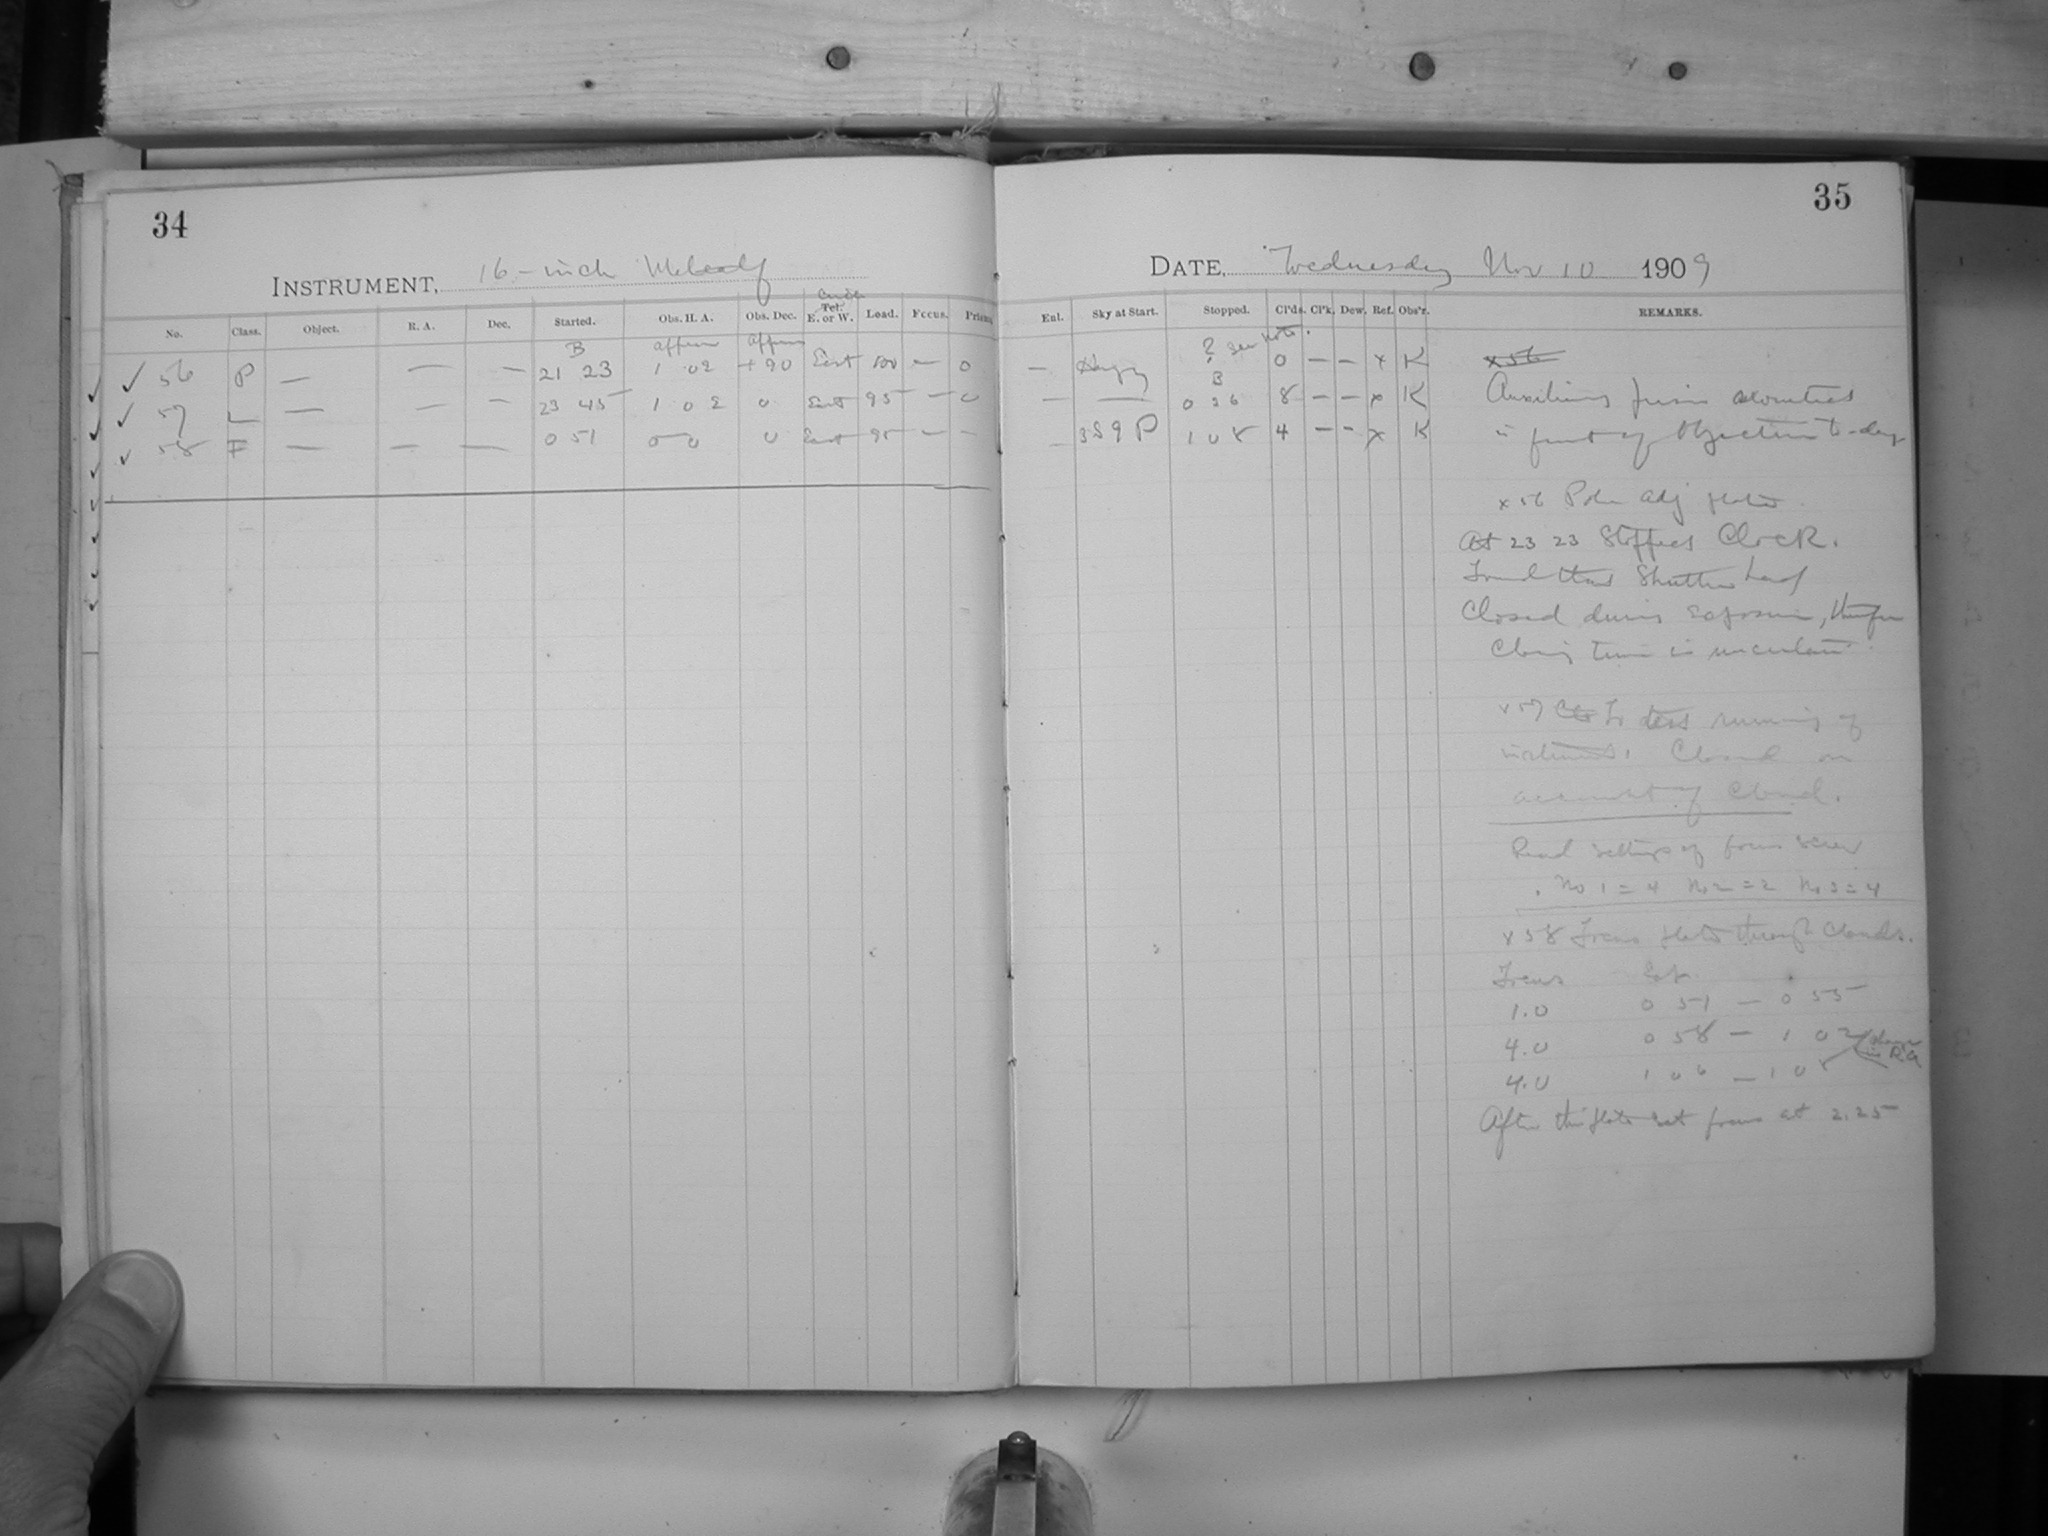 34
INSTRUMENT, 16-inch Metcalf
No. Class. Object. R. A. Dec. Started. Obs. H. A. Obs. Dec. Tel. E. or W. Load. Focus. Prism.
B
✓ 56 P — — — 21 23 1 02 +90 East 100 — 0
✓ 57 L — — — 23 45 1 02 0 East 95 — 0
✓ 58 F — — — 0 51 0 0 0 East 95 — —
35
DATE, Wednesday Nov 10 1909
Enl. Sky at Start. Stopped. Cl'ds. Cl'k. Dew. Ref. Obs'r. REMARKS.
? see note.
— Hazy 0 — — x K
B
— — 0 36 8 — — x K
— 3S9P 1 08 4 — — x K
x56
Auxiliary prism mounted
in front of Objective to-day
x 56 Polar adj plate
At 23 23 Stopped Clock.
Found that Shutter had
Closed during exposure, therefore
Closing time is uncertain.
x 57 To test running of
instrument. Closed on
account of Cloud.
Read settings of focus screw
No 1 = 4 No 2 = 2 No 3 = 4
x 58 Focus plate through Clouds.
Focus Exp.
1.0 0 51 — 0 55
4.0 0 58 — 1 02
in R.A
4.0 1 06 — 1 08
After this plate set focus at 2.25